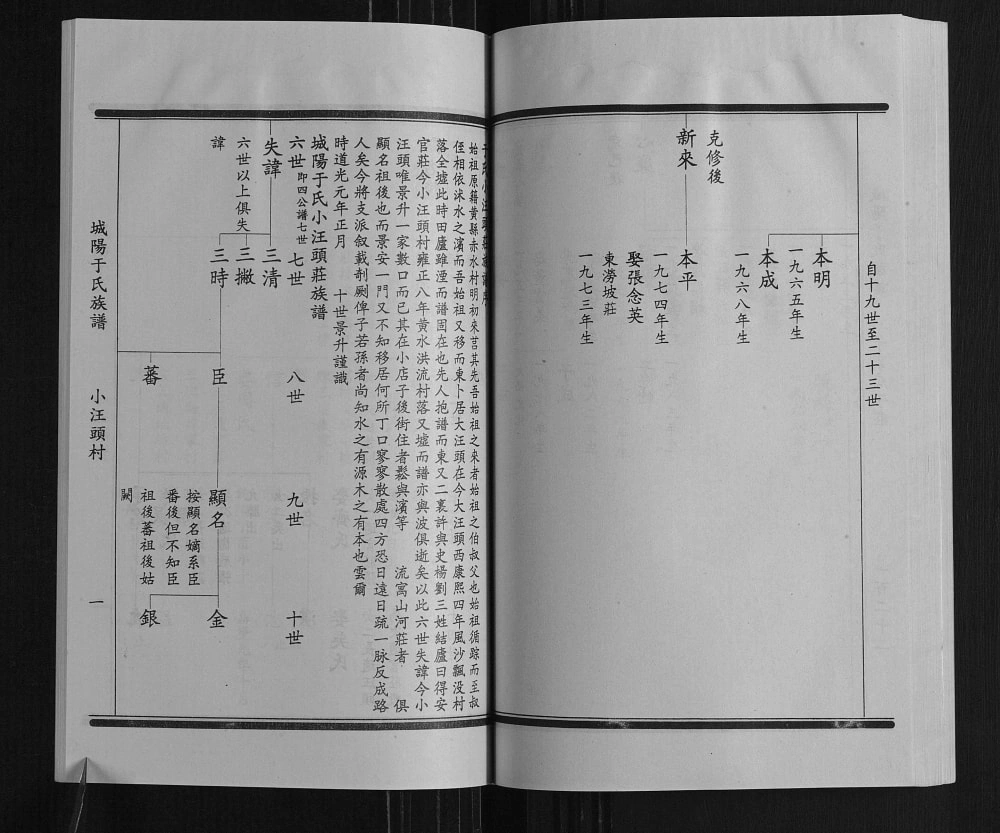 自十九世至二十三世
克修後
新來
本明
一九六五年生
本成
一九六八年生
本平
一九七四年生
娶張念英
東澇坡莊
一九七三年生
始祖原籍黄縣赤水村明初來莒其先吾始祖之來者始祖之伯叔父也始祖循踪而至叔
侄相依沭水之濱而吾始祖又移而東卜居大汪頭在今大汪頭西康熙四年風沙飄没村
落全墟此時田廬雖湮而譜固在也先人抱譜而東又二裏許與史楊劉三姓結廬曰得安
官莊今小汪頭村雍正八年黄水洪流村落又墟而譜亦與波俱逝矣以此六世失諱今小
汪頭唯景升一家數口而已其在小店子後街住者鬆與濱等 流寓山河莊者 俱
顯名祖後也而景安一門又不知移居何所丁口寥寥散處四方恐日遠日疏一脉反成路
人矣今將支派叙載剞劂俾子若孫者尚知水之有源木之有本也雲爾
時道光元年正月 十世景升謹識
城陽于氏小汪頭莊族譜
六世 即四公譜七世 七世 八世 九世 十世
失諱
六世以上俱失
諱
三清
三撇
三時
臣
蕃
顯名
按顯名嫡系臣
番後但不知臣
祖後蕃祖後姑
闕
金
銀
城陽于氏族譜 小汪頭村 一